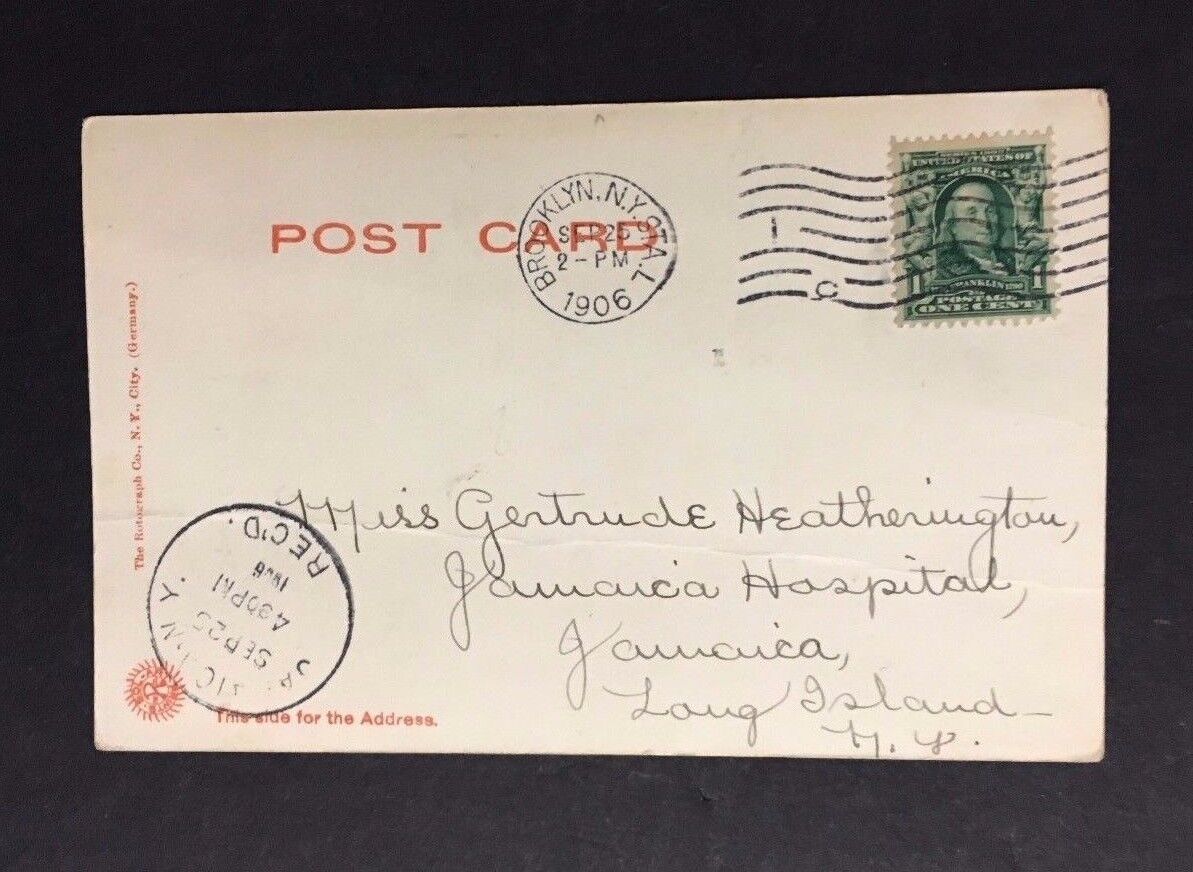 POST CARD
BROOKLYN, N.Y. STA. L
SEP 25
2 - PM
1906
SERIES 1902
UNITED STATES OF
AMERICA
1 1
FRANKLIN
POSTAGE
ONE CENT
The Rotograph Co., N. Y., City. (Germany.)
Miss Gertrude Heatherington,
Jamaica Hospital,
Jamaica,
Long Island
N. Y.
REC'D.
1906
4 30 PM
SEP 25
This side for the Address.